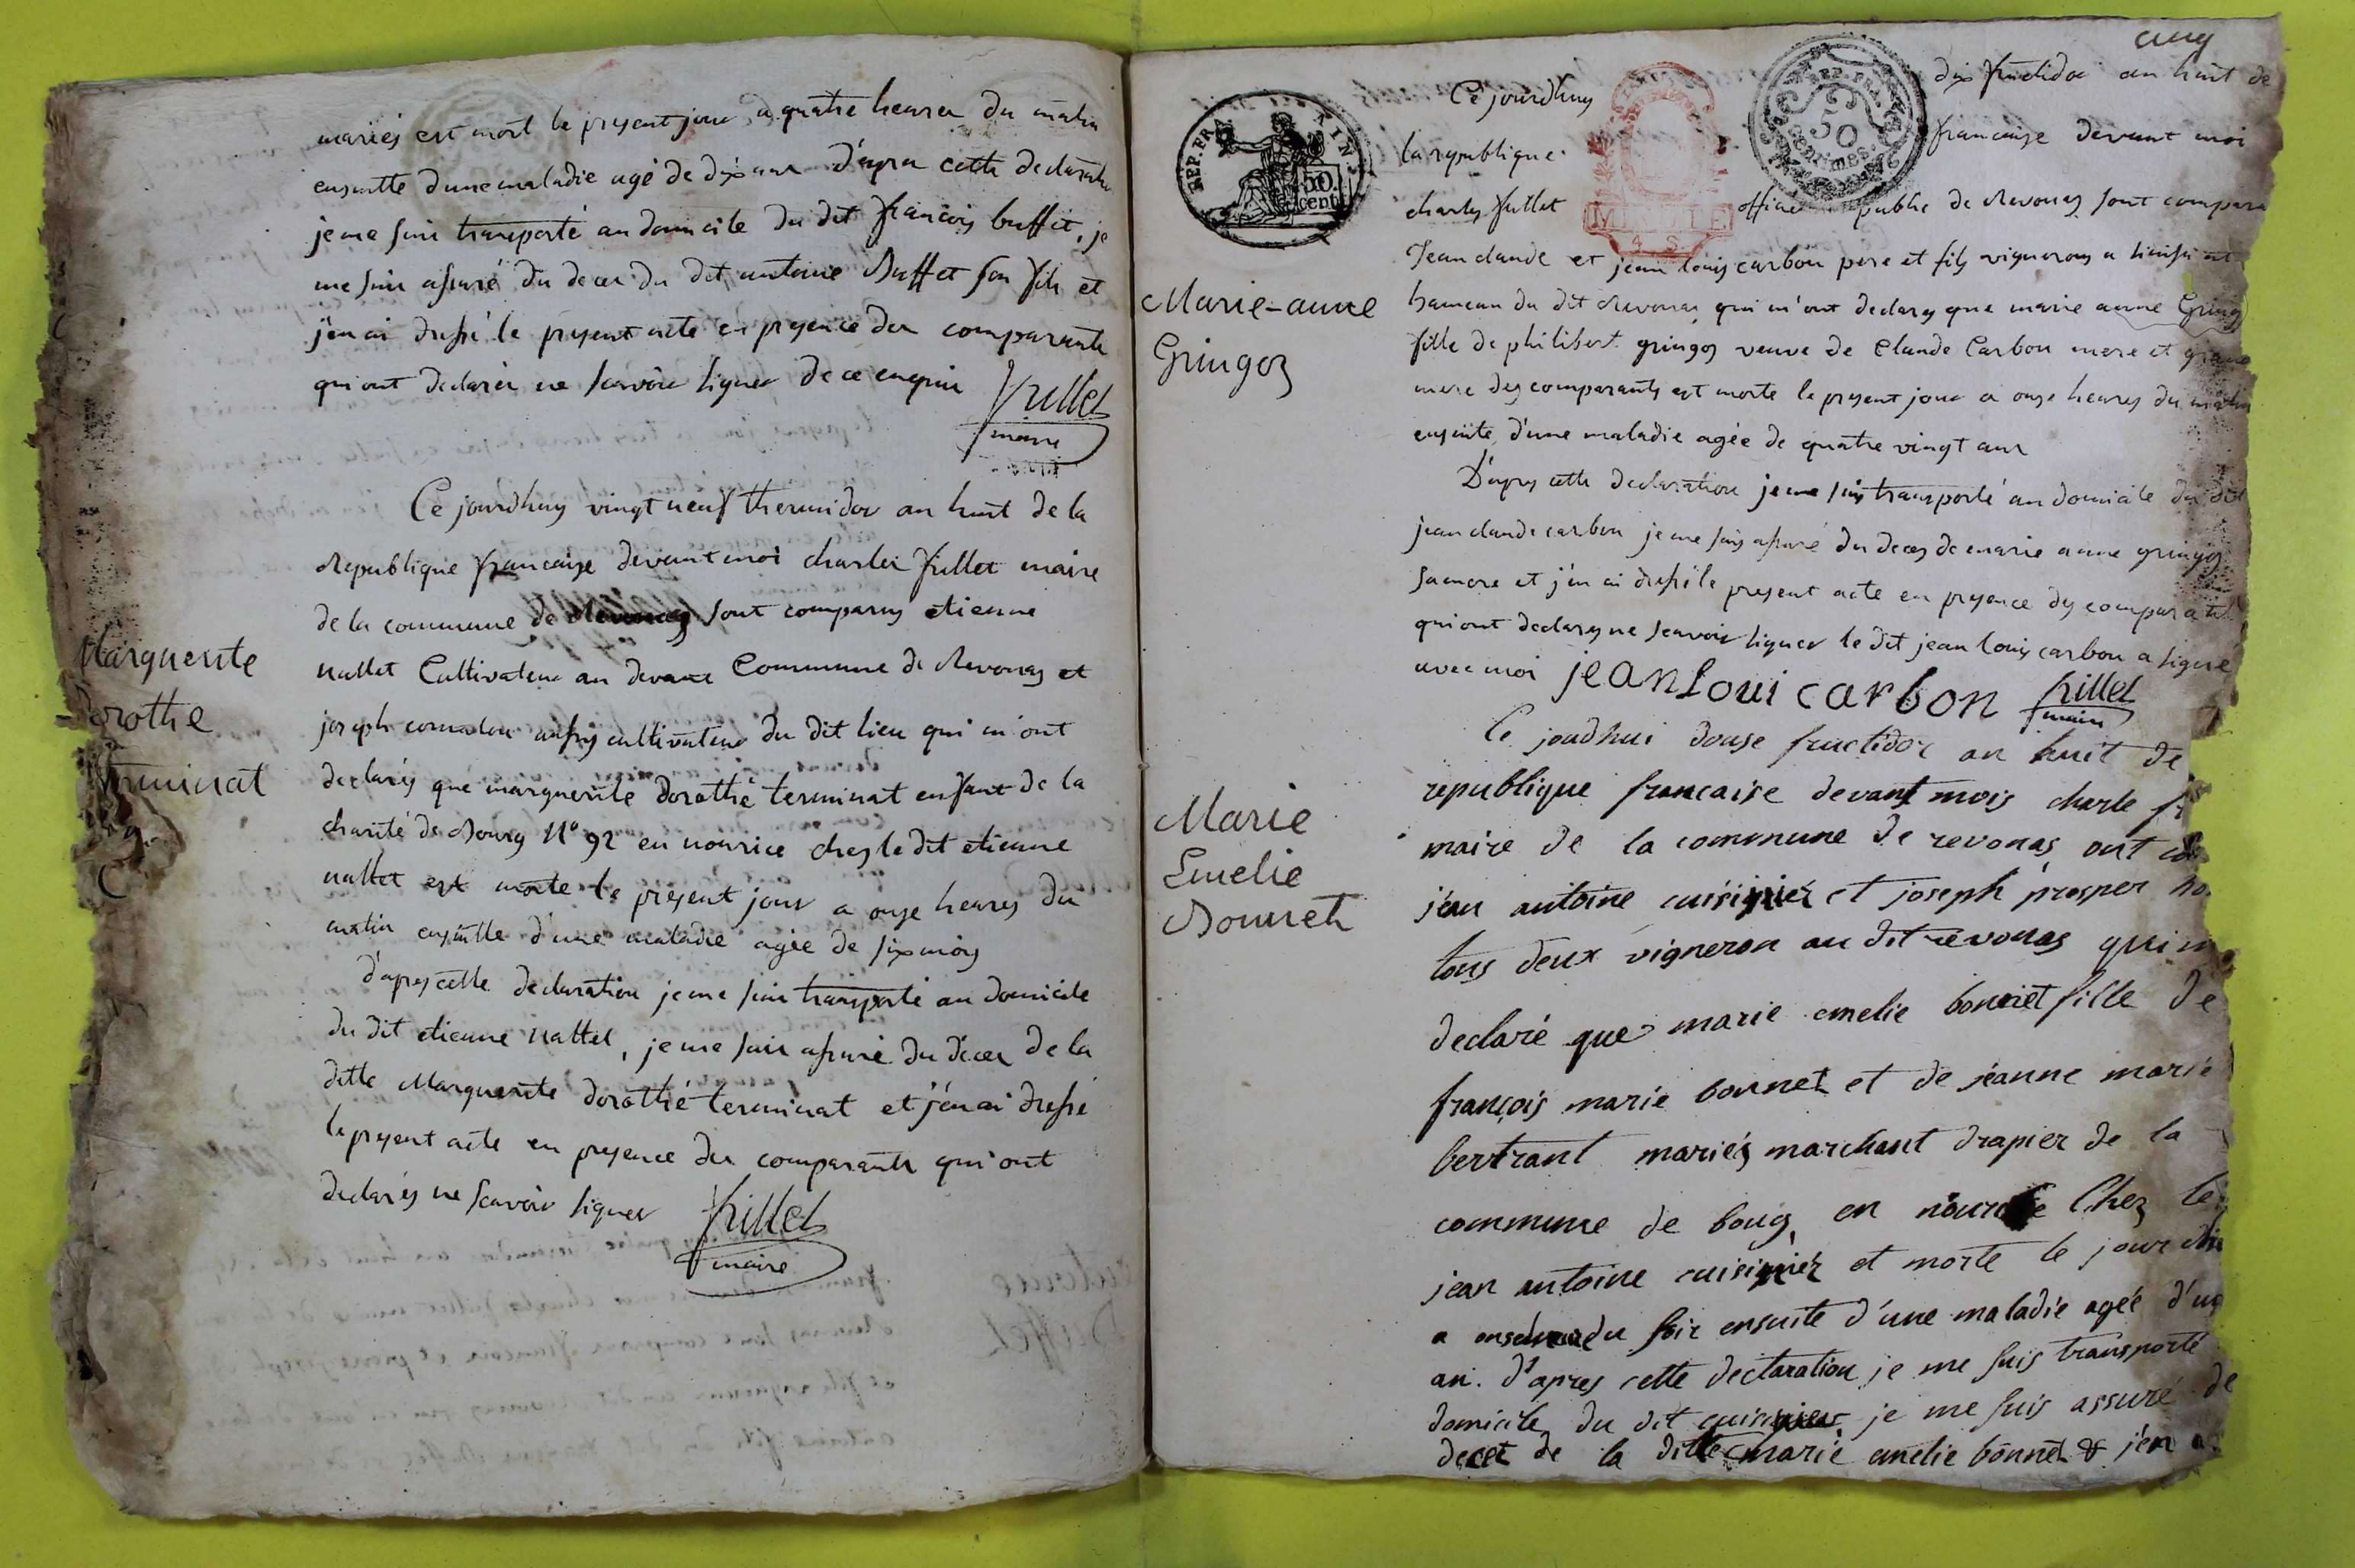 mariés est mort le present jour a quatre heures du matin
ensuitte d'une maladie agé de dix ans d'apres cette declaration
je me suis transporté au domicile du dit françois buffet, je
me suis assuré du deces du dit antoine Buffet son fils et
j'en ai dressé le present acte en presence des comparants
qui ont declarés ne scavoir signer de ce enquis
frillet
maire
Marguerite
Dorothe
terminat
Ce jourdhuy vingt neuf thermidor an huit de la
Republique francaise devant moi charles frillet maire
de la commune de Revonas sont comparus etienne
nallet Cultivateur au devant Commune de Revonas et
joseph aussy cultivateur du dit lieu qui m'ont
declarés que marguerite dorothé terminat enfant de la
charité de Bourg N° 92 en nourice chez le dit etienne
nallet est morte le present jour a onze heures du
matin ensuitte d'une maladie agée de six mois
d'apres cette declaration je me suis transporté au domicile
du dit etienne nallet, je me suis assuré du deces de la
ditte Marguerite dorothé terminat et j'en ai dressé
le present acte en presence des comparants qui ont
declarés ne scavoir signer
frillet
maire
cinq
REP. FRA.
50
cent
REP. FRA.
50
centimes
4 S
Marie-anne
Gringoz
Ce jourdhuy dix fructidor an huit de
la republique francaise devant moi
charles frillet officier public de Revonas sont compara
Jean claude et jean louis carbon pere et fils vignerons a
hameau du dit Revonas qui m'ont declarés que marie anne Gringoz
fille de philibert gringoz veuve de Claude Carbon mere et grand
mere des comparants est morte le present jour a onze heures du matin
ensuite d'une maladie agée de quatre vingt ans
D'apres cette declaration je me suis transporté au domicile du dit
jean claude carbon je me suis assuré du deces de marie anne gringoz
sa mere et j'en ai dressé le present acte en presence des comparants
qui ont declarés ne scavoir signer le dit jean louis carbon a signé
avec moi jeAn Loui carbon frillet
maire
Marie
Emelie
Bonnet
Ce joudhui douse fructidor an huit de
republique francaise devant mois charle fr
maire de la commune de revonas ont
jéan antoine cuisinier et joseph prosper
tous deux vigneron au dit revonas qui m
declaré que marie emelie bonnet fille de
françois marie bonnet et de jéanne marie
bertrant mariés marchant drapier de la
commune de boug, en nourice Chez le
jean antoine cuisinier et morte le jour
a onse heure du soir ensuite d'une maladie agéé d'un
an. d'apres cette declaration je me suis transporté
domicile du dit cuisinier, je me suis assuré de
decet de la ditte marie emelie bonnet & j'en a